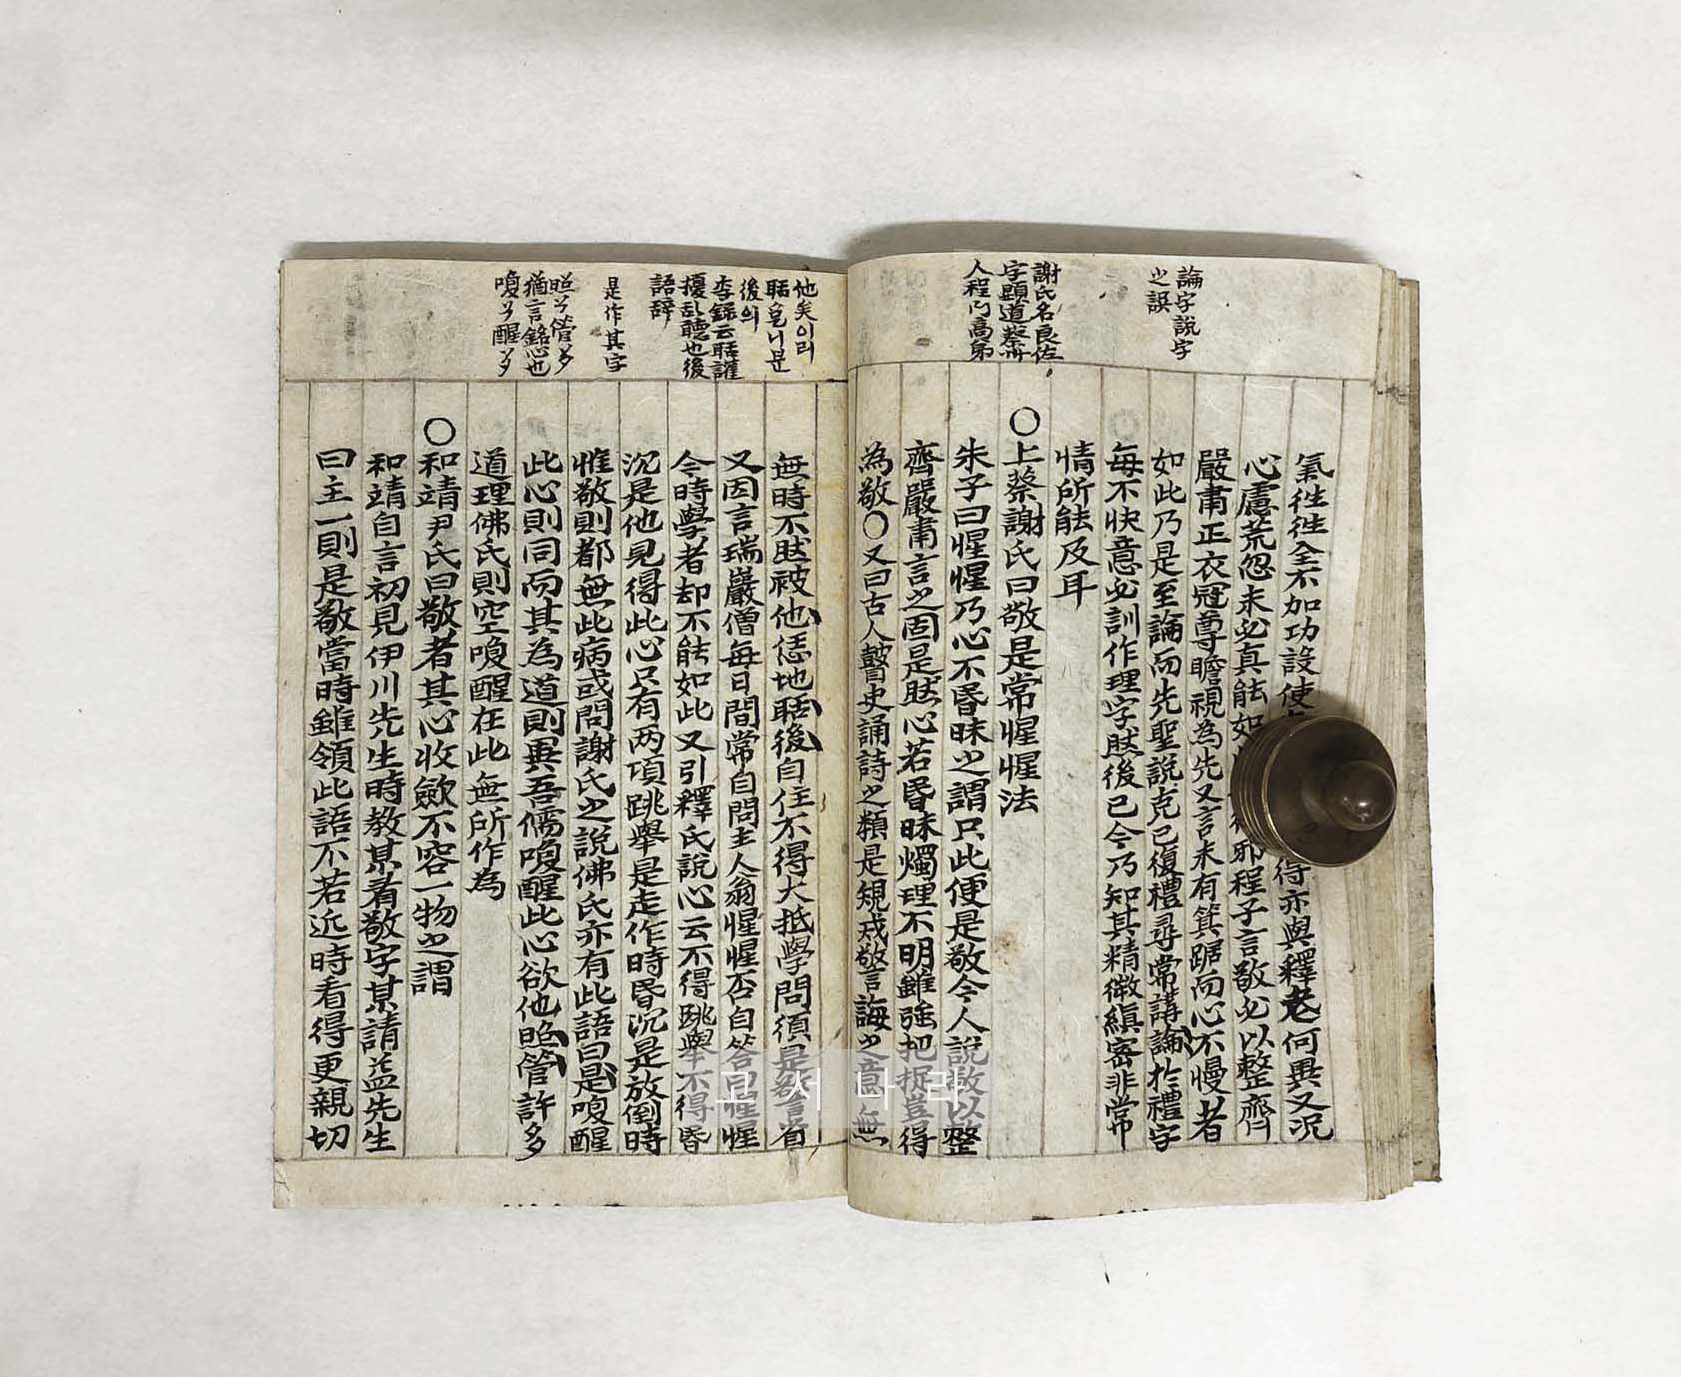 論字說字
之誤
謝氏名良佐
字顯道蔡州
人程門高弟
氣徃徃全不加功設使
得亦與釋老何異又況
心慮荒忽未必真能如
邪程子言敬必以整齊
嚴肅正衣冠尊瞻視為先又言未有箕踞而心不慢者
如此乃是至論而先聖說克己復禮尋常講論於禮字
每不快意必訓作理字然後已今乃知其精微縝密非常
情所能及耳
○上蔡謝氏曰敬是常惺惺法
朱子曰惺惺乃心不昏昧之謂只此便是敬今人說敬以整
齊嚴肅言之固是然心若昏昧燭理不明雖强把捉豈得
為敬○又曰古人瞽史誦詩之類是規戒警誨之意無
他矣이리
聒ᄒᆞ니문
後의
李錄云聒讙
擾亂聽也後
語辞
是作其字
照〻管多
猶言銘心也
喚〻醒多
無時不然被他恁地聒後自住不得大抵學問須是警省
又因言瑞巖僧每日間常自問主人翁惺惺否自答曰惺惺
今時學者却不能如此又引釋氏說心云不得跳舉不得昏
沉是他見得此心只有两項跳舉是走作時昏沉是放倒時
惟敬則都無此病或問謝氏之說佛氏亦有此語曰是喚醒
此心則同而其為道則異吾儒喚醒此心欲他照管許多
道理佛氏則空喚醒在此無所作為
○和靖尹氏曰敬者其心收斂不容一物之謂
和靖自言初見伊川先生時教某看敬字某請益先生
曰主一則是敬當時雖領此語不若近時看得更親切
고서나라